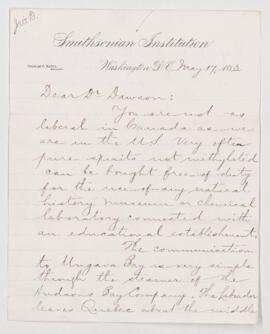 Smithsonian Institution
Washington D.C. May 17, 188
Dear Dr Dawson:
You are not as
liberal in Canada as we
are in the U.S. Very often
pure spirits not methylated
can be bought free of duty
for the use of any natural
history museum or chemical
laboratory connected with
an educational establishment.
The communication
to Ungava Bay is very simple
through the steamer of the
Hudsons Bay Company. The Labrador
leaves Quebec about the middle